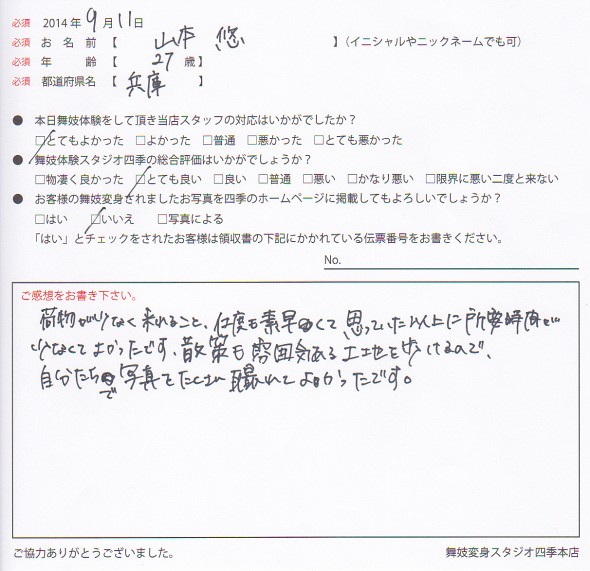 必須 2014年 9月 11日
必須 お名前【 山本 悠 】(イニシャルやニックネームでも可)
必須 年齢【 27 歳】
必須 都道府県名【 兵庫 】
● 本日舞妓体験をして頂き当店スタッフの対応はいかがでしたか?
□とてもよかった □よかった □普通 □悪かった □とても悪かった
● 舞妓体験スタジオ四季の総合評価はいかがでしょうか?
□物凄く良かった □とても良い □良い □普通 □悪い □かなり悪い □限界に悪い二度と来ない
● お客様の舞妓変身されましたお写真を四季のホームページに掲載してもよろしいでしょうか?
□はい □いいえ □写真による
「はい」とチェックをされたお客様は領収書の下記にかかれている伝票番号をお書きください。
No.
ご感想をお書き下さい。
荷物が少なく来れること、仕度も素早くて思っていた以上に所要時間が
少なくてよかったです、散策も雰囲気ある土地を歩けるので、
自分たちで写真をたくさん撮れてよかったです。
ご協力ありがとうございました。
舞妓変身スタジオ四季本店